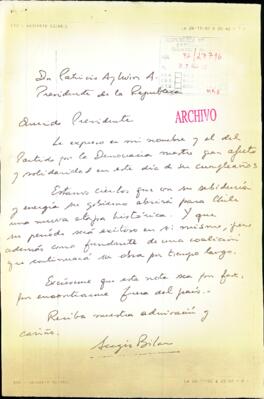 Dn Patricio Aylwin A.
Presidente de la República
ARCHIVO
Querido Presidente
Le expreso en mi nombre y el del
Partido por la Democracia nuestro gran afecto
y solidaridad en este día de su cumpleaños
Estamos ciertos que con su sabiduría
y energía su gobierno abrirá para Chile
una nueva etapa histórica. Y que
su período será exitoso en sí mismo, pero
además como fundante de una coalición
que continuará su obra por tiempo largo.
Excúseme que esta nota sea por fax,
por encontrarme fuera del país.
Reciba nuestra admiración y
cariño.
Sergio Bitar